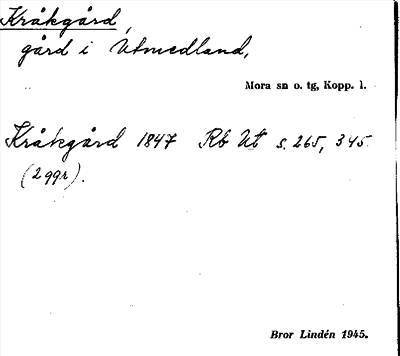 Kråkgård,
gård i Utmedland,
Mora sn o. tg, Kopp. l.
Kråkgård 1847 Rb Ut s. 265, 345
(2 ggr).
Bror Lindén 1945.